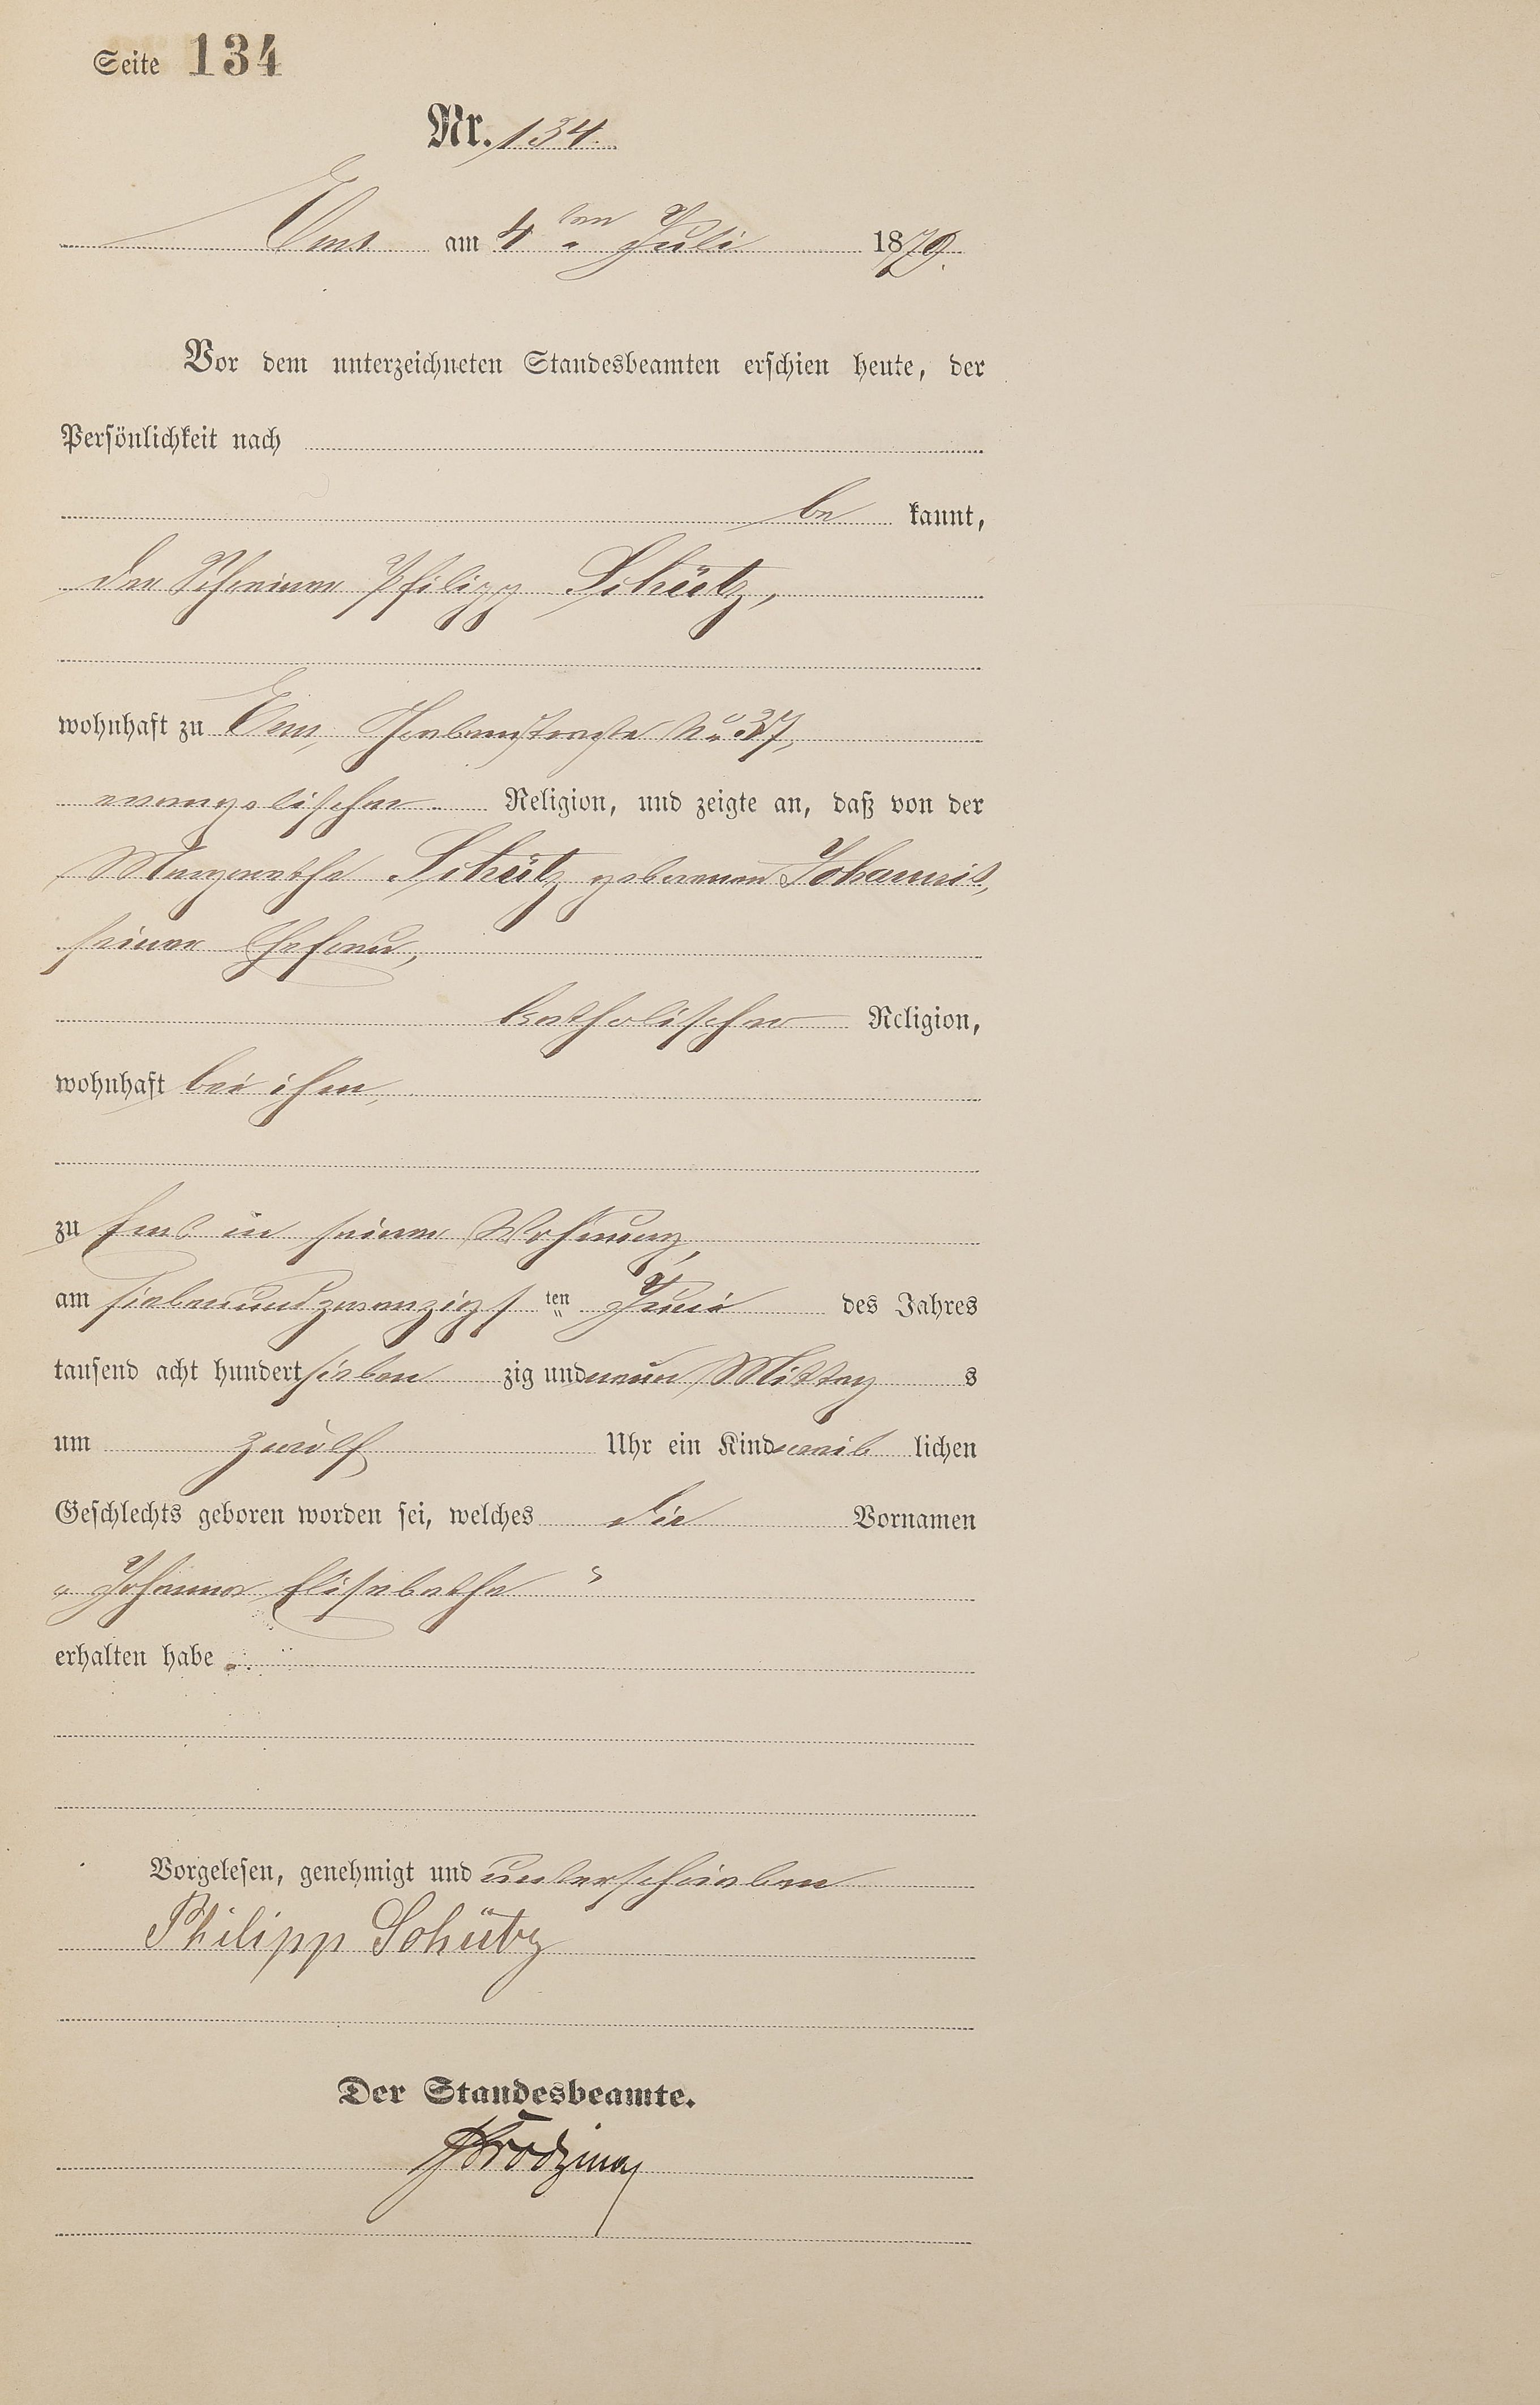 Seite 134
Nr. 134.
Ems am 4ten Juli 1879.
Vor dem unterzeichneten Standesbeamten erschien heute, der
Persönlichkeit nach
be kannt,
der Schreiner Philipp Schütz,
wohnhaft zu Ems, No 37,
evangelischer Religion, und zeigte an, daß von der
Margarethe Schütz geborenen Johannis,
seiner Ehefrau,
katholischer Religion,
wohnhaft bei ihm,
zu Ems in seiner Wohnung,
am siebenundzwanzigs ten Juni des Jahres
tausend acht hundert sieben zig und neun Mittag s
um zwölf Uhr ein Kind weib lichen
Geschlechts geboren worden sei, welches die Vornamen
„Johanna Elisabetha"
erhalten habe.
Vorgelesen, genehmigt und unterschrieben
Philipp Schütz
Der Standesbeamte.